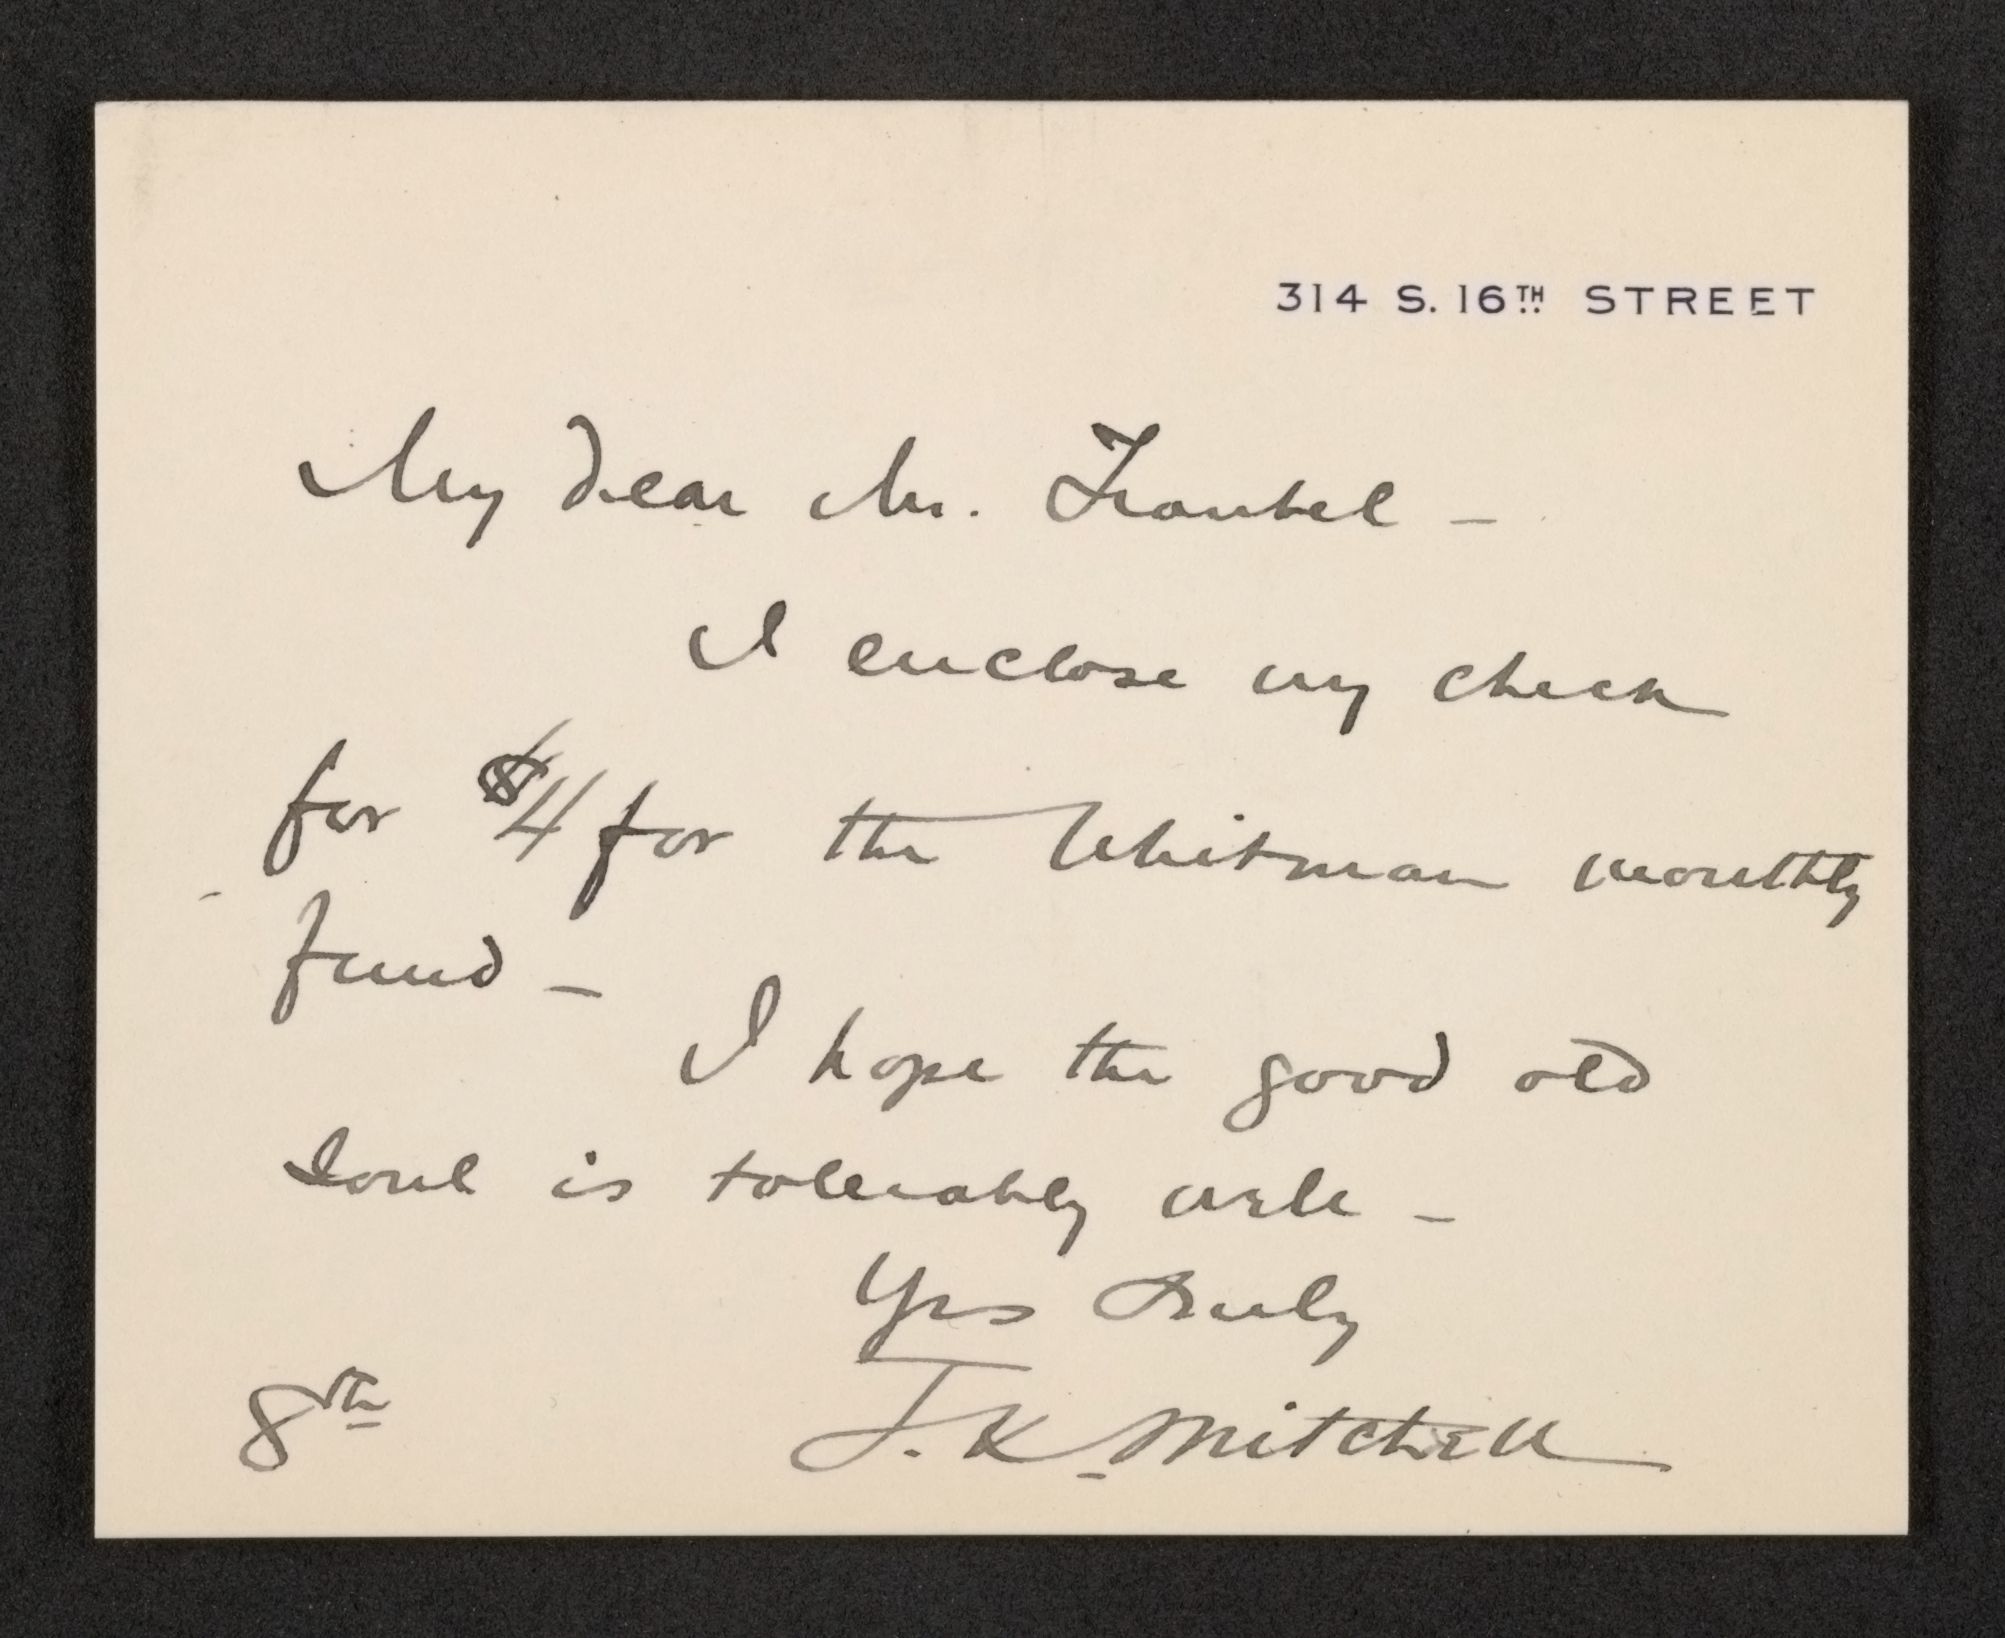 314 S. 16TH STREET
My dear Mr. Traubel -
I enclose my check
for $4 for the Whitman monthly
fund -
I hope the good old
soul is tolerably well -
Yrs truly
J. K. Mitchell
8th